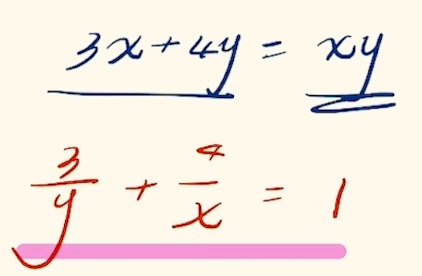 3x+4y = xy
3/y + 4/x = 1